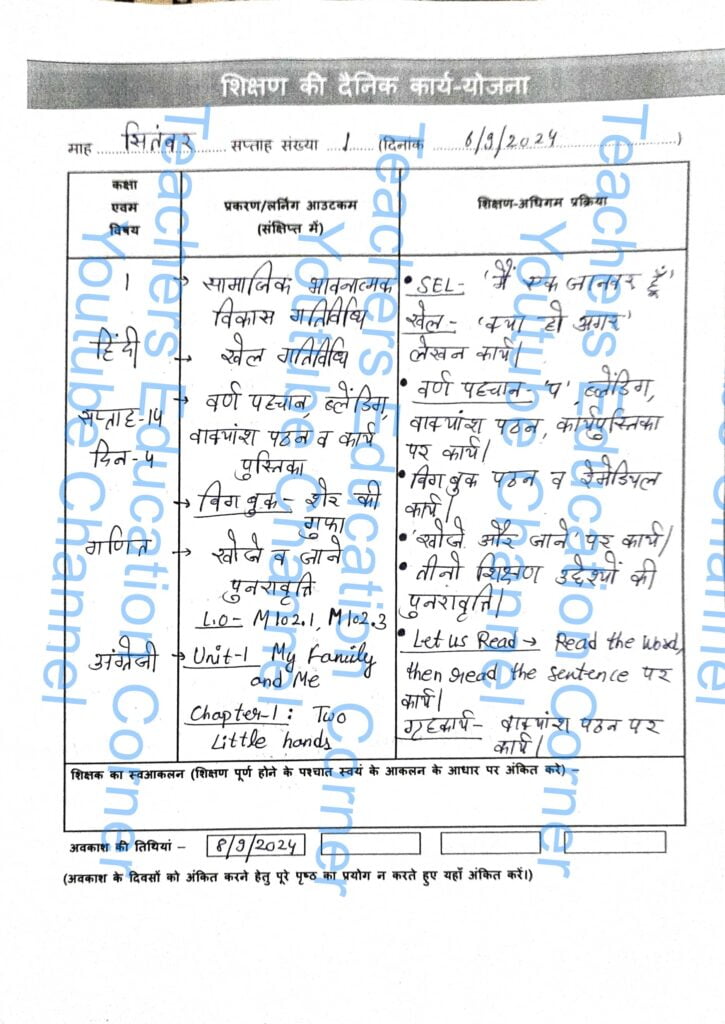 शिक्षण की दैनिक कार्य-योजना
माह सितंबर सप्ताह संख्या 1 (दिनांक 6/9/2024)
कक्षा एवम विषय
प्रकरण/लर्निंग आउटकम (संक्षिप्त में)
शिक्षण-अधिगम प्रक्रिया
1
हिंदी
सप्ताह-14
दिन-4
→ सामाजिक भावनात्मक
विकास गतिविधि
→ खेल गतिविधि
→ वर्ण पहचान, ब्लेंडिंग,
वाक्यांश पठन व कार्य
पुस्तिका
→ बिग बुक - शेर की
गुफा
• SEL- 'मैं एक जानवर हूँ'
खेल- 'क्या हो अगर'
लेखन कार्य।
• वर्ण पहचान- 'प', ब्लेंडिंग,
वाक्यांश पठन, कार्यपुस्तिका
पर कार्य।
• बिग बुक पठन व रेमेडियल
कार्य।
गणित
→ खोजे व जाने
पुनरावृत्ति
L.O- M102.1, M102.3
• 'खोजे और जाने' पर कार्य।
• तीनो शिक्षण उद्देश्यों की
पुनरावृत्ति।
अंग्रेजी
→ Unit-1 My Family
and Me
Chapter-1: Two
Little hands
• Let us Read → Read the word,
then read the sentence पर
कार्य।
गृहकार्य- वाक्यांश पठन पर
कार्य।
शिक्षक का स्वआकलन (शिक्षण पूर्ण होने के पश्चात स्वयं के आकलन के आधार पर अंकित करे) –
अवकाश की तिथियां – 8/9/2024
(अवकाश के दिवसों को अंकित करने हेतु पूरे पृष्ठ का प्रयोग न करते हुए यहाँ अंकित करें।)
Teachers Education Corner
Youtube Channel
Teachers Education Corner
Youtube Channel
Teachers Education Corner
Youtube Channel